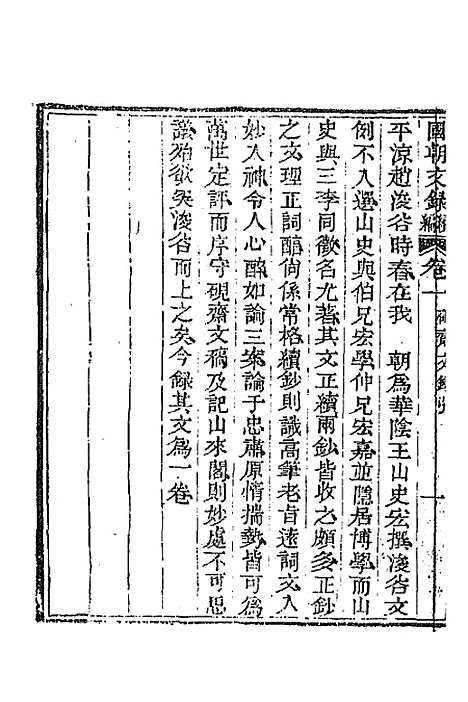 國朝文錄續編 卷一 砥齋文錄引 一
平涼趙浚谷時春在我 朝爲華陰王山史宏撰浚谷文
例不入選山史與伯兄宏學仲兄宏嘉並隱居博學而山
史與三李同徵名尤著其文正續兩鈔皆收之頗多正鈔
之文理正詞醇尙係常格續鈔則識高筆老旨遠詞文入
妙入神令人心醉如論三案論于忠肅原情揣勢皆可爲
萬世定評而序守硯齋文稿及記山來閣則妙處不可思
議殆欲吳浚谷而上之矣今錄其文爲一卷